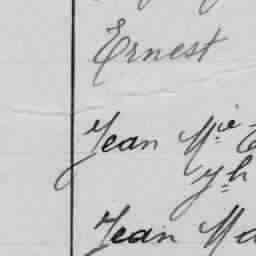 Ernest
Jean Mie
Jean Ma